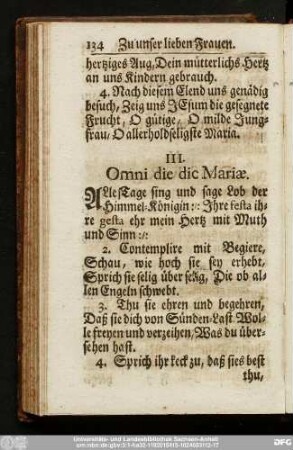 134 Zu unser lieben Frauen.
hertziges Aug, Dein mütterlichs Hertz
an uns Kindern gebrauch.
4. Nach diesem Elend uns genädig
besuch, Zeig uns JEsum die gesegnete
Frucht, O gütige, O milde Jung-
frau, O allerholdseligste Maria.
III.
Omni die dic Mariæ.
ALle Tage sing und sage Lob der
Himmel-Königin :,: Jhre festa ih-
re gesta ehr mein Hertz mit Muth
und Sinn :,:
2. Contemplire mit Begiere,
Schau, wie hoch sie sey erhebt,
Sprich sie selig über selig, Die ob al-
len Engeln schwebt.
3. Thu sie ehren und begehren,
Daß sie dich von Sünden-Last Wol-
le freyen und verzeihen, Was du über-
sehen hast.
4. Sprich ihr keck zu, daß sies best
thu,
Universitäts- und Landesbibliothek Sachsen-Anhalt